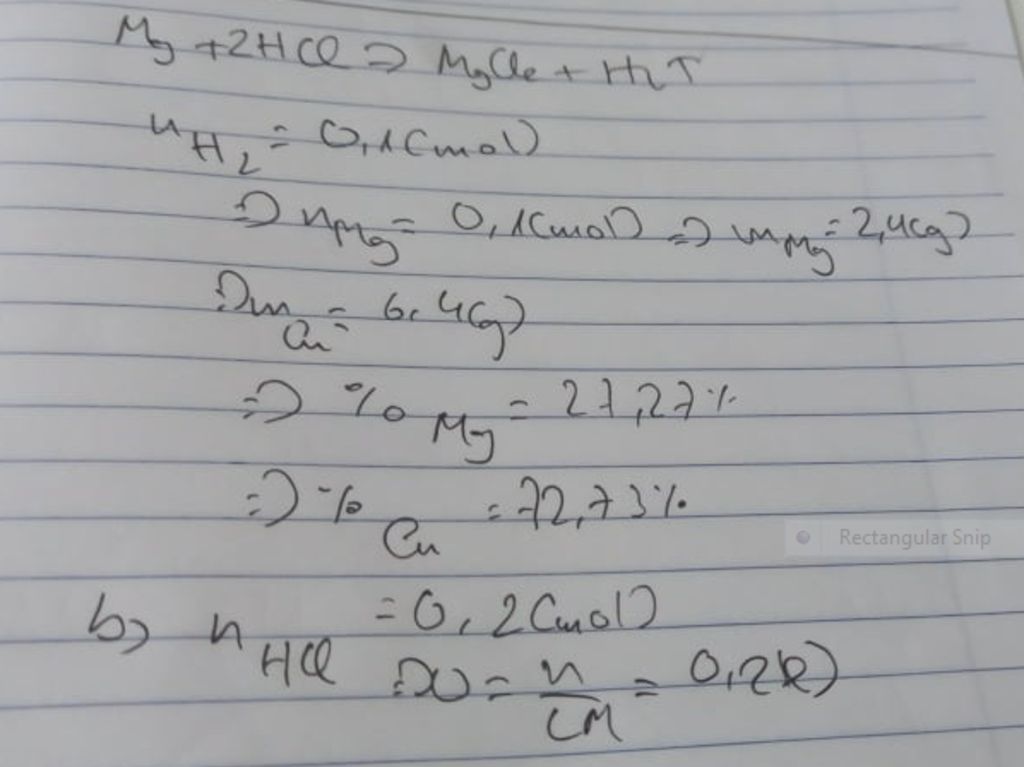 Mg + 2HCl => MgCl2 + H2↑
nH2 = 0,1(mol)
=> nMg = 0,1(mol) => mMg = 2,4(g)
=> mCu = 6,4(g)
=> %Mg = 27,27%
=> %Cu = 72,73%
Rectangular Snip
b) nHCl = 0,2(mol)
=> V = n/CM = 0,2(l)